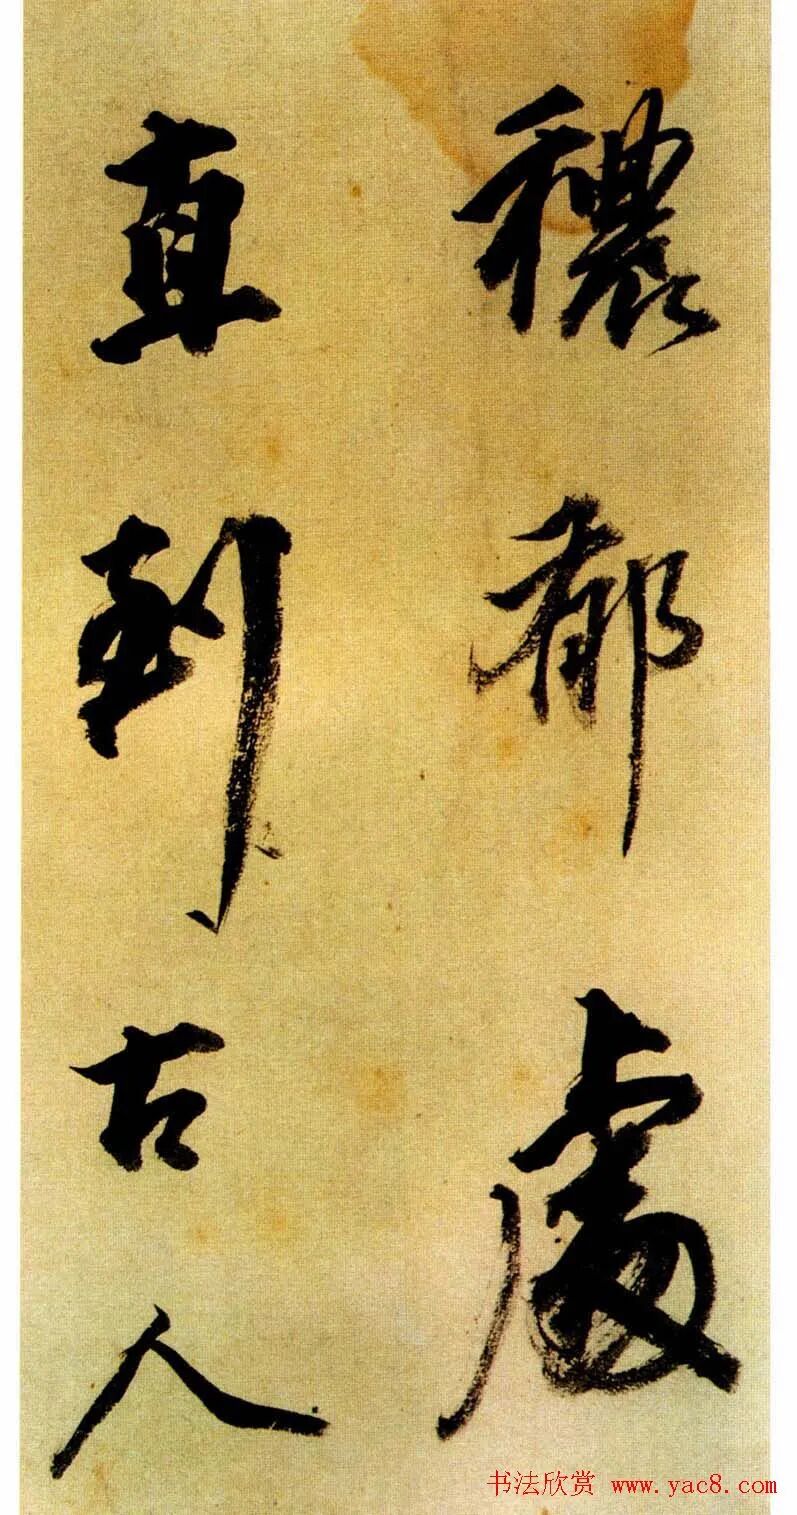 穠郁處
直到古人
书法欣赏 www.yac8.com